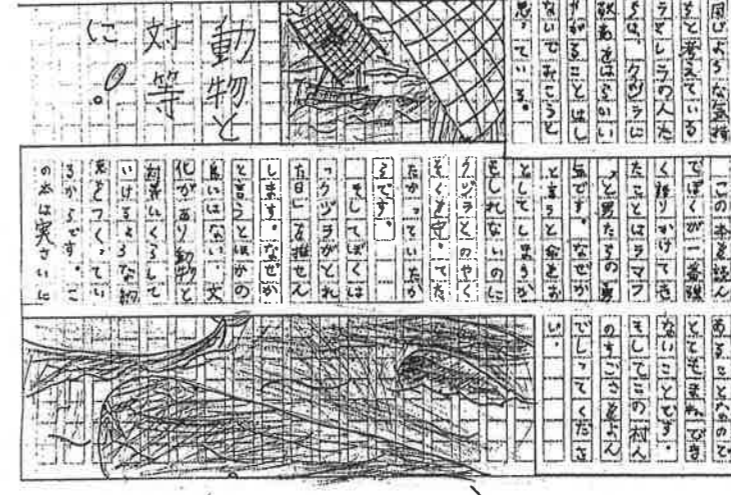 同じような気持
ちと考えている
ラマレラの人た
ちは、クジラに
敬意をはらい
やがることはし
ないでおこうと
思っている。
動物と
対等
に!。
この本を読ん
でぼくが一番強
く語りかけてき
たことはラマフ
ァと男たちの勇
気です。なぜか
と言うと命をお
としてしまうか
もしれないのに
クジラとのやく
そくを守ってた
たかっていたか
らです。
そしてぼくは
「クジラがとれ
た日」を推せん
します。なぜか
と言うとほかの
島にはない、文
化があり動物と
対等にくらして
いけるような
をつくってい
るからです。こ
の本は実さいに
あることなので
とてもまねでき
ないことです。
そしてこの村人
のすごさをよん
でしってくださ
い。